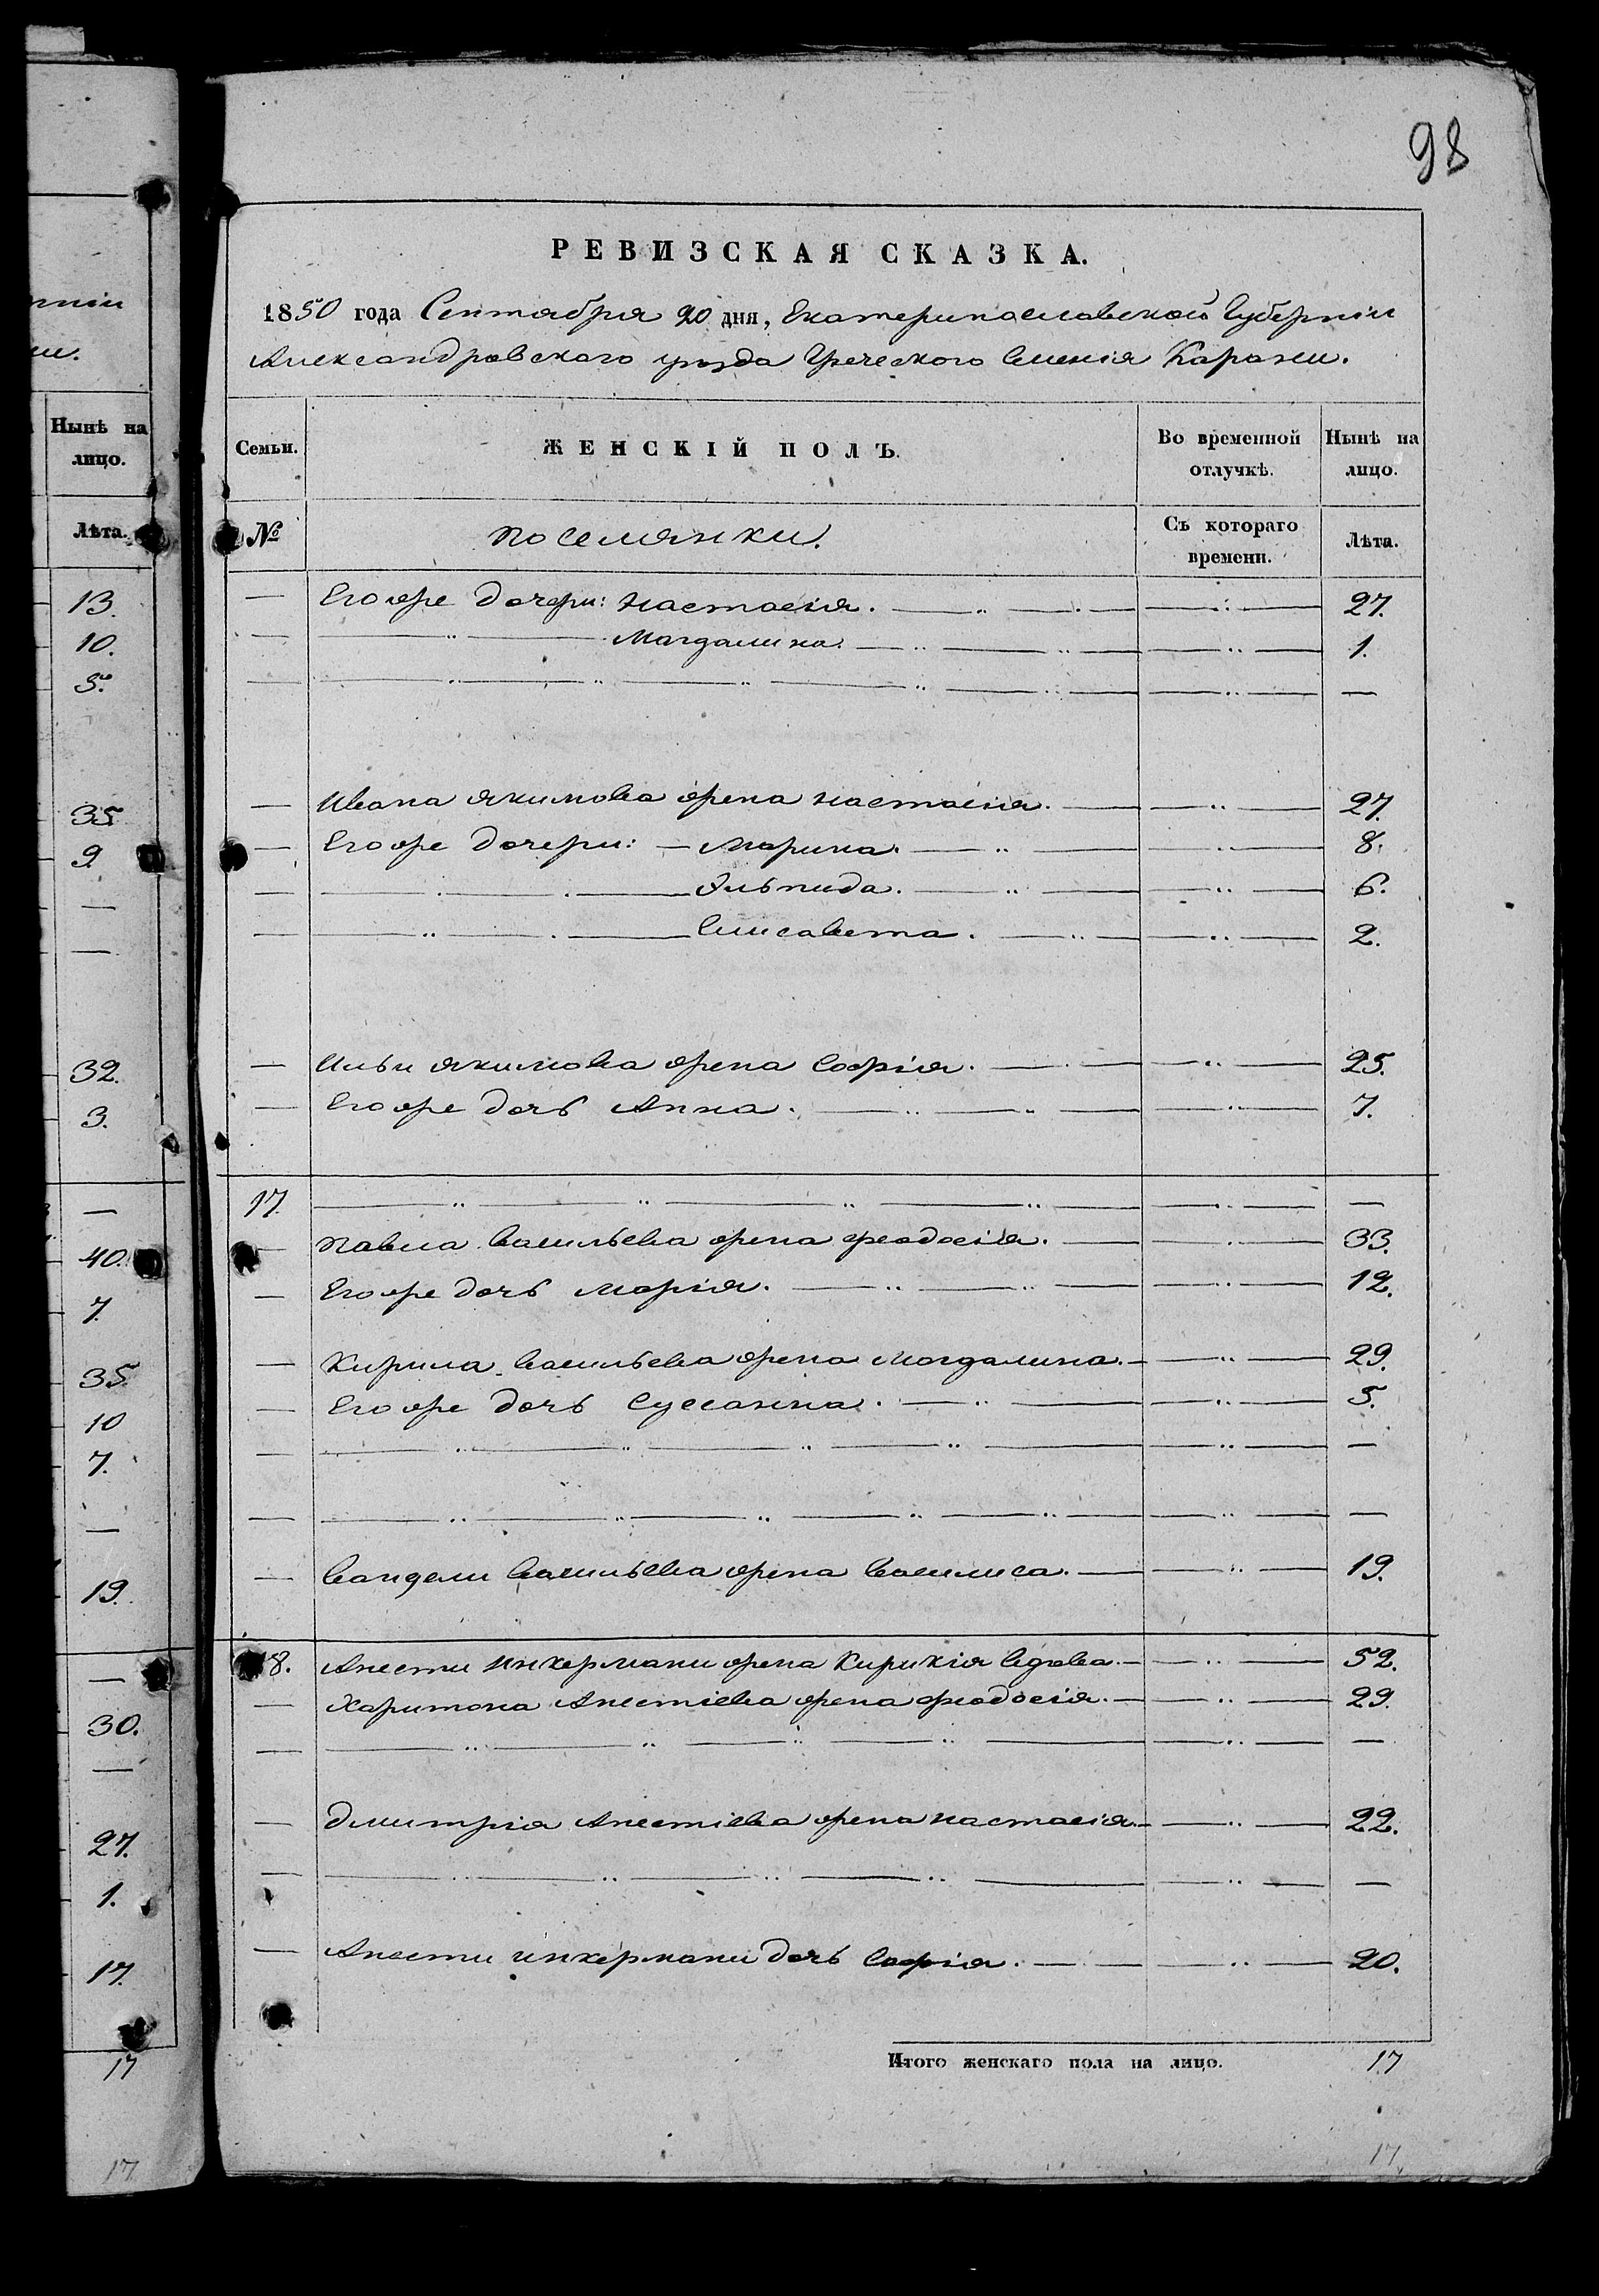 98
РЕВИЗСКАЯ СКАЗКА.
1850 года Сентября 20 дня, Екатеринославской Губерніи
Александровского уезда Греческого Селенія Карани.
Семьи. ЖЕНСКІЙ ПОЛЪ. Во временной отлучкѣ. Нынѣ на лицо.
№ поселянки. Съ котораго времени. Лѣта.
— Его же дочери: Настасія. 27.
— Магдалина. 1.
—
— Ивана Якимова жена Настасія. 27.
— Его же дочери: Марина. 8.
— Эльпида. 6.
— Елисавета. 2.
— Ильи Якимова жена Софія. 25.
— Его же дочь Анна. 7.
17. —
— Павла Васильева жена Феодосія. 33.
— Его же дочь Марія. 12.
— Кирила Васильева жена Магдалина. 29.
— Его же дочь Суссанна. 5.
— —
— —
— Вандели Васильева жена Василиса. 19.
18. Анести Инкермани жена Кирикія вдова. 52.
— Харитона Анестіева жена Феодосія. 29.
— —
— Дмитрія Анестіева жена Настасія. 22.
— —
— Анести Инкермани дочь Софія. 20.
Итого женскаго пола на лицо. 17
17
Нынѣ на лицо.
Лѣта.
13.
10.
5.
35
9.
—
—
32.
3.
—
40.
7.
35.
10
7.
—
19.
—
30.
—
27.
1.
17.
17
17